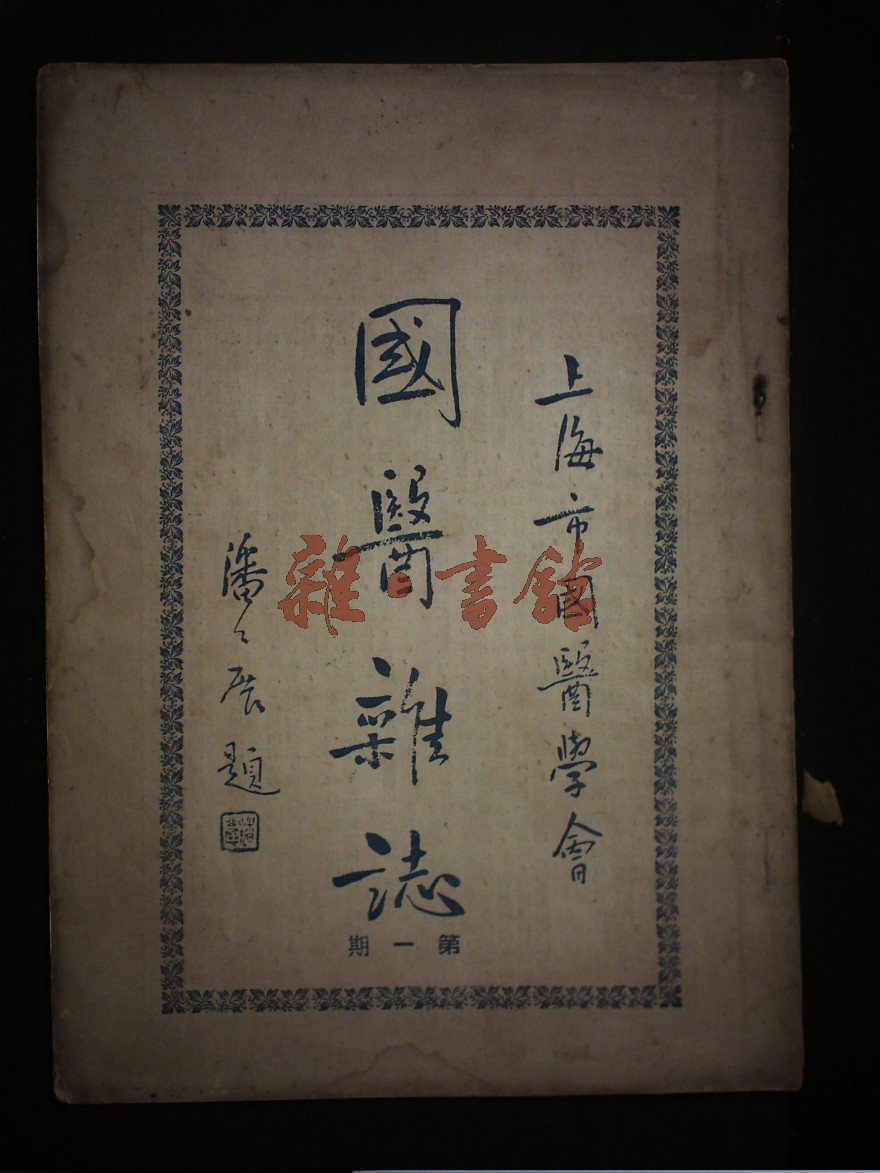 上海市國醫學會
國醫雜誌
第一期
潘公展題
雜·書館